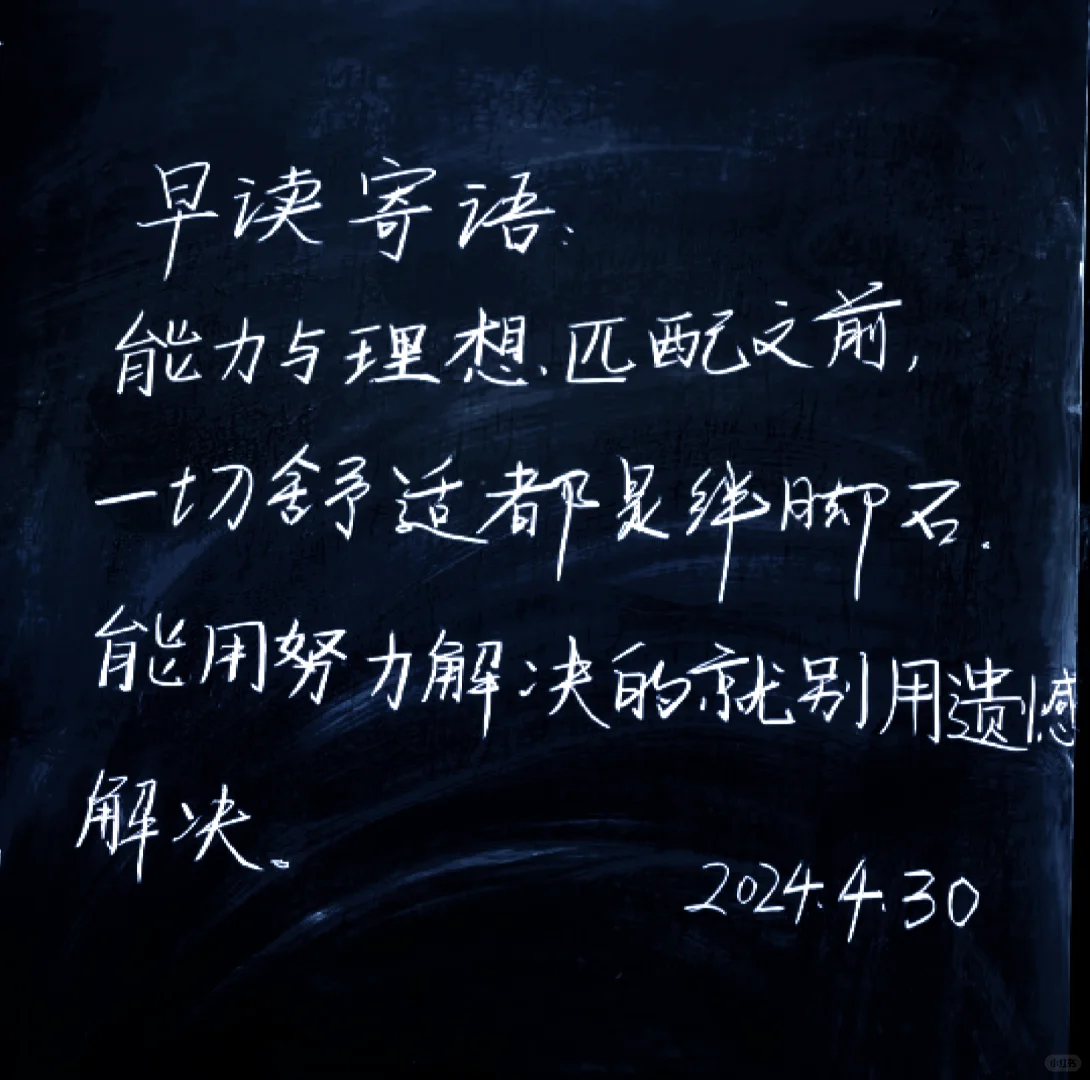 早读寄语:
能力与理想、匹配之前,
一切舒适都是绊脚石.
能用努力解决的就别用遗憾
解决。
2024.4.30
小红书